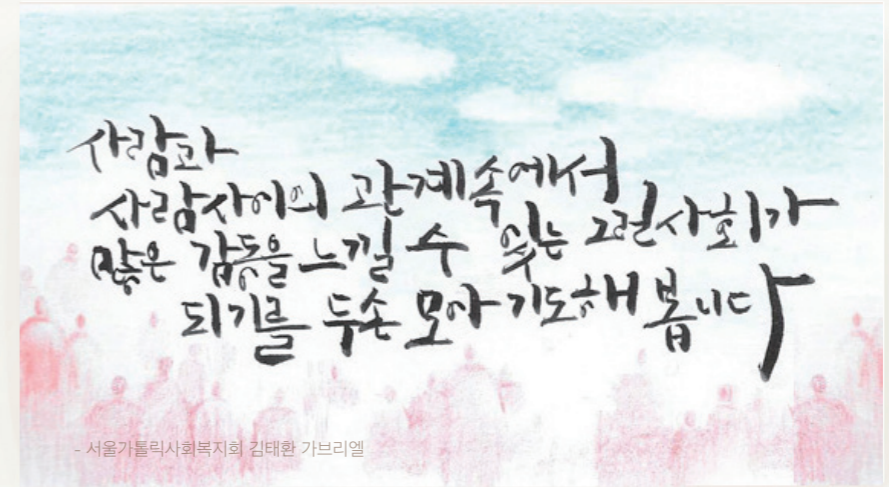 사람과
사람사이의 관계속에서
많은 감동을 느낄 수 있는 그런사회가
되기를 두손 모아 기도해 봅니다
- 서울가톨릭사회복지회 김태환 가브리엘